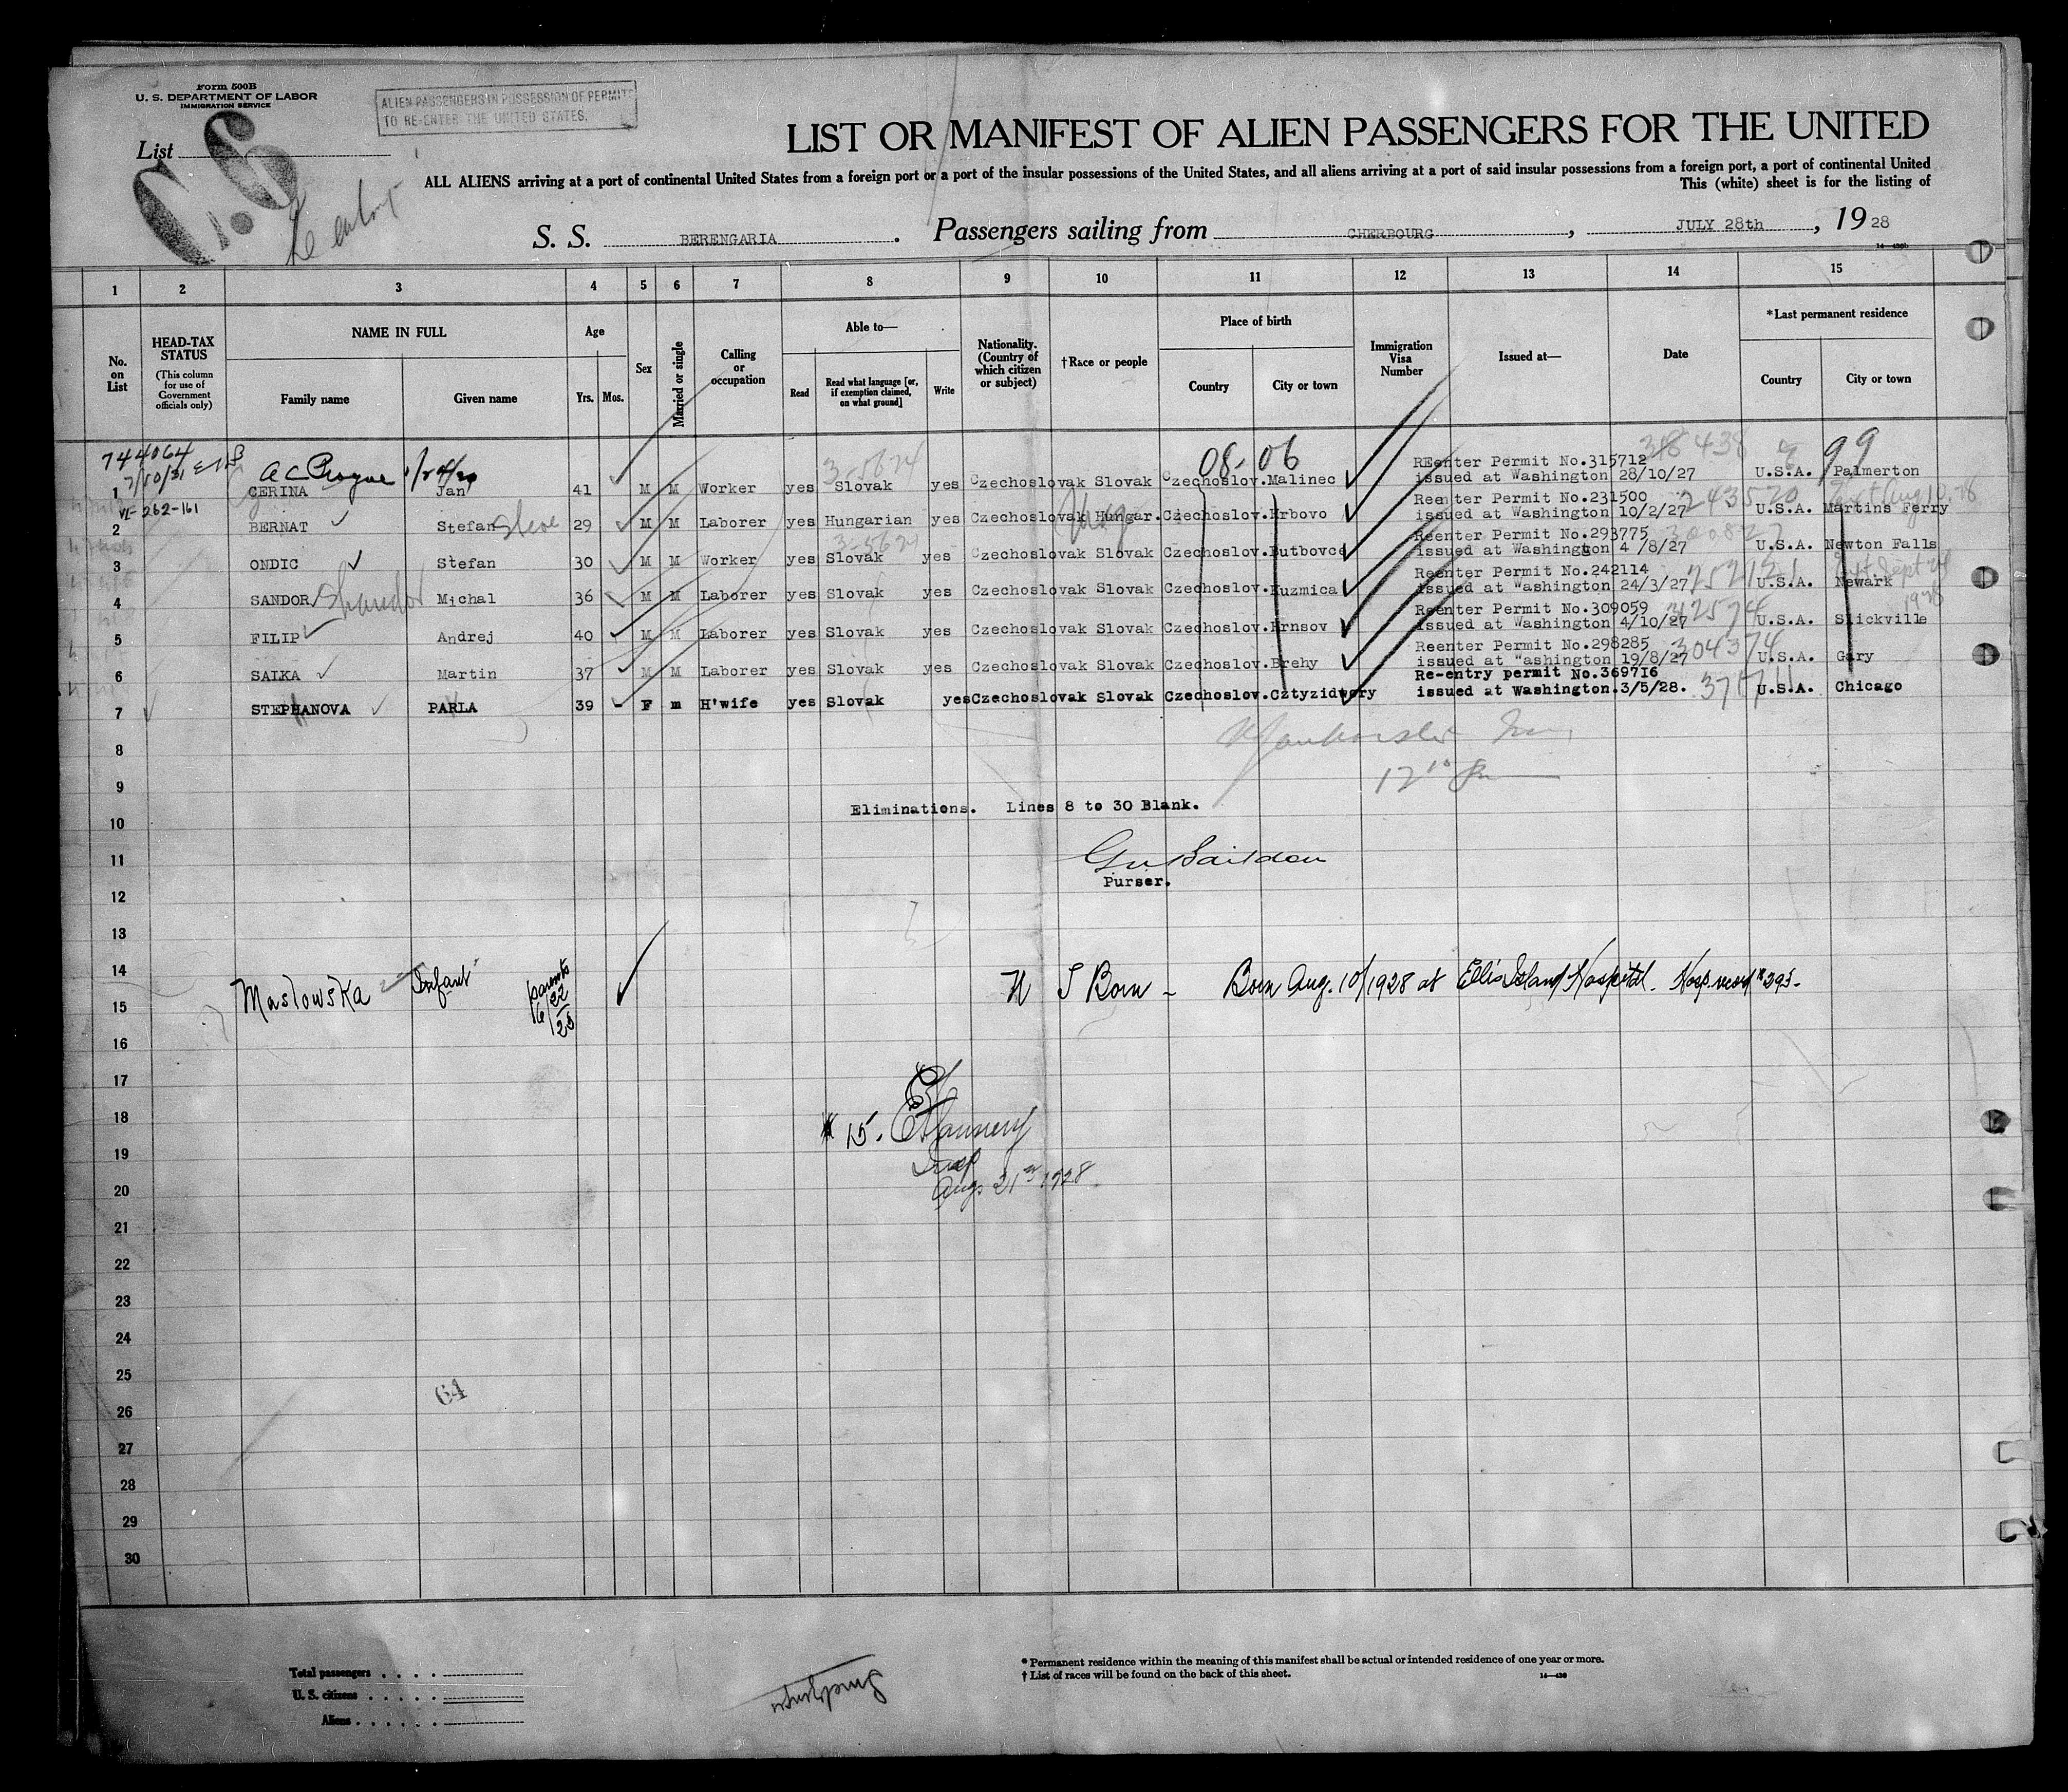 Form 500B
U. S. DEPARTMENT OF LABOR
IMMIGRATION SERVICE
ALIEN PASSENGERS IN POSSESSION OF PERMITS
TO RE-ENTER THE UNITED STATES.
List
LIST OR MANIFEST OF ALIEN PASSENGERS FOR THE UNITED
ALL ALIENS arriving at a port of continental United States from a foreign port or a port of the insular possessions of the United States, and all aliens arriving at a port of said insular possessions from a foreign port, a port of continental United
This (white) sheet is for the listing of
S. S. BERENGARIA. Passengers sailing from CHERBOURG, JULY 28th, 19 28
1 2 3 4 5 6 7 8 9 10 11 12 13 14 15
No. on List
HEAD-TAX STATUS
(This column for use of Government officials only)
NAME IN FULL
Family name Given name
Age
Yrs. Mos.
Sex
Married or single
Calling or occupation
Able to—
Read Read what language [or, if exemption claimed, on what ground] Write
Nationality. (Country of which citizen or subject)
†Race or people
Place of birth
Country City or town
Immigration Visa Number
Issued at—
Date
*Last permanent residence
Country City or town
744064
08-06 99
VE-262-161
1 CERINA Jan 41 M M Worker yes Slovak yes Czechoslovak Slovak Czechoslov. Malinec REenter Permit No.315712 issued at Washington 28/10/27 U.S.A. Palmerton
2 BERNAT Stefan Steve 29 M M Laborer yes Hungarian yes Czechoslovak Hungar. Czechoslov. Hrbovo Reenter Permit No.231500 issued at Washington 10/2/27 243520 U.S.A. Martins Ferry
3 ONDIC Stefan 30 M M Worker yes Slovak yes Czechoslovak Slovak Czechoslov. Butbovce Reenter Permit No.293775 issued at Washington 4 /8/27 U.S.A. Newton Falls
4 SANDOR Michal 36 M M Laborer yes Slovak yes Czechoslovak Slovak Czechoslov. Kuzmica Reenter Permit No.242114 issued at "ashington 24/3/27 252121 U.S.A. Newark
5 FILIP Andrej 40 M M Laborer yes Slovak yes Czechoslovak Slovak Czechoslov. Hrnsov Reenter Permit No.309059 issued at Washington 4/10/27 U.S.A. Slickville
6 SAIKA Martin 37 M M Laborer yes Slovak yes Czechoslovak Slovak Czechoslov. Brehy Reenter Permit No.298285 issued at "ashington 19/8/27 304374 U.S.A. Gary
7 STEPHANOVA PARLA 39 - F m H'wife yes Slovak yes Czechoslovak Slovak Czechoslov. Cztyzidwory Re-entry permit No.369716 issued at Washington.3/5/28. U.S.A. Chicago
8
9
Eliminations. Lines 8 to 30 Blank.
10
11
Purser.
12
13
14
Maslowska Infant parents 22 Born - Born Aug. 10/1928 at Ellis Island Hospital.
15
16
17
18
15.
19
Insp
20
Aug. 21st 1928
21
22
23
24
25
64
26
27
28
29
30
Total passengers
U. S. citizens
Aliens
* Permanent residence within the meaning of this manifest shall be actual or intended residence of one year or more.
† List of races will be found on the back of this sheet.